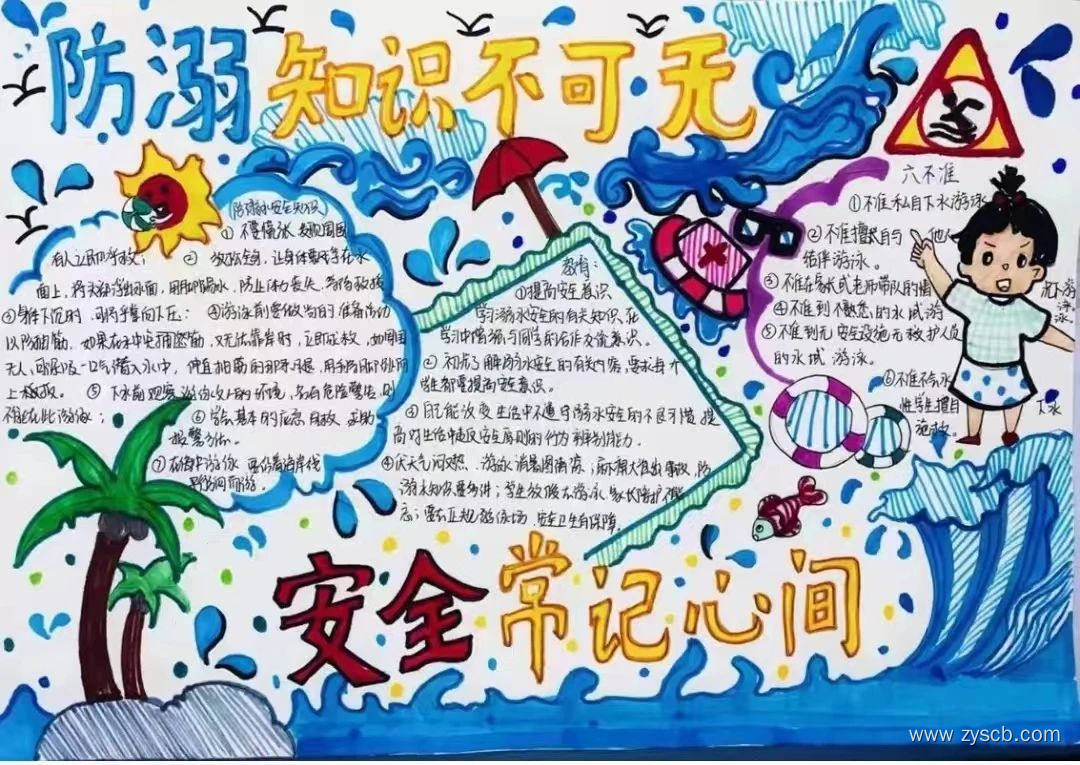 防溺知识不可无
(防溺水安全知识)
① 不要慌张、发现周围
有人立即呼救；② 放松全身，让身体飘浮在水
面上，将头部浮出水面，用脚踢水，防止体力丧失，等待救援
③身体下沉时，可将手掌向下压；④游泳前要做好的准备活动
以防抽筋，如果在水中突然抽筋，又无法靠岸时，立即求救，如周围
无人，可深吸一口气潜入水中，伸直抽筋的那条腿，用手
上
⑤ 下水前观察游泳处的环境，若有危险警告，则
不能在此游泳；⑥ 学会基本的应急、自救、求助
报警方法。
⑦在海中游泳，要沿着海岸线
平行方向而游。
教育：
①提高安全意识
学习游水安全的有关知识，在
学习中增强与同学的合作交流意识。
② 初步了解游水安全的有关内容，要求每个
学生都要提高安全意识。
③ 自己能改变生活中不遵守游水安全的不良习惯，提
高对生活中违反安全原则的行为辨别能力。
④伏天气闷热、游泳消暑
学生放假去游泳，家长陪护不
要去正规游泳场，安全卫生有保障。
六不准
①不准私自下水游泳
②不准擅自与他人
结伴游泳。
③不准在无家长或老师带队的情况下游泳
④不准到不熟悉的水域游
⑤不准到无安全设施无救护人员
的水域游泳。
⑥不准不会水
性学生擅自下水
施救。
安全常记心间
www.zyscb.com